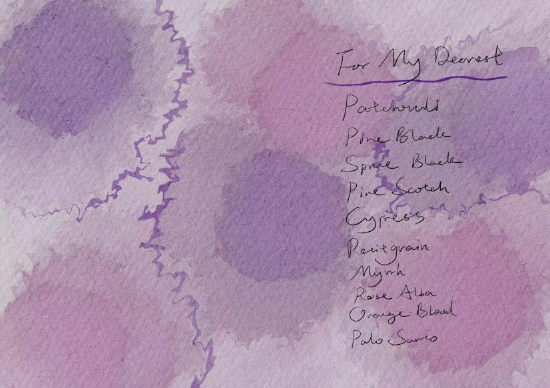 For My Dearest
Patchouli
Pine Black
Spruce Black
Pine Scotch
Cypress
Petitgrain
Myrrh
Rose Alba
Orange Blood
Palo Santo